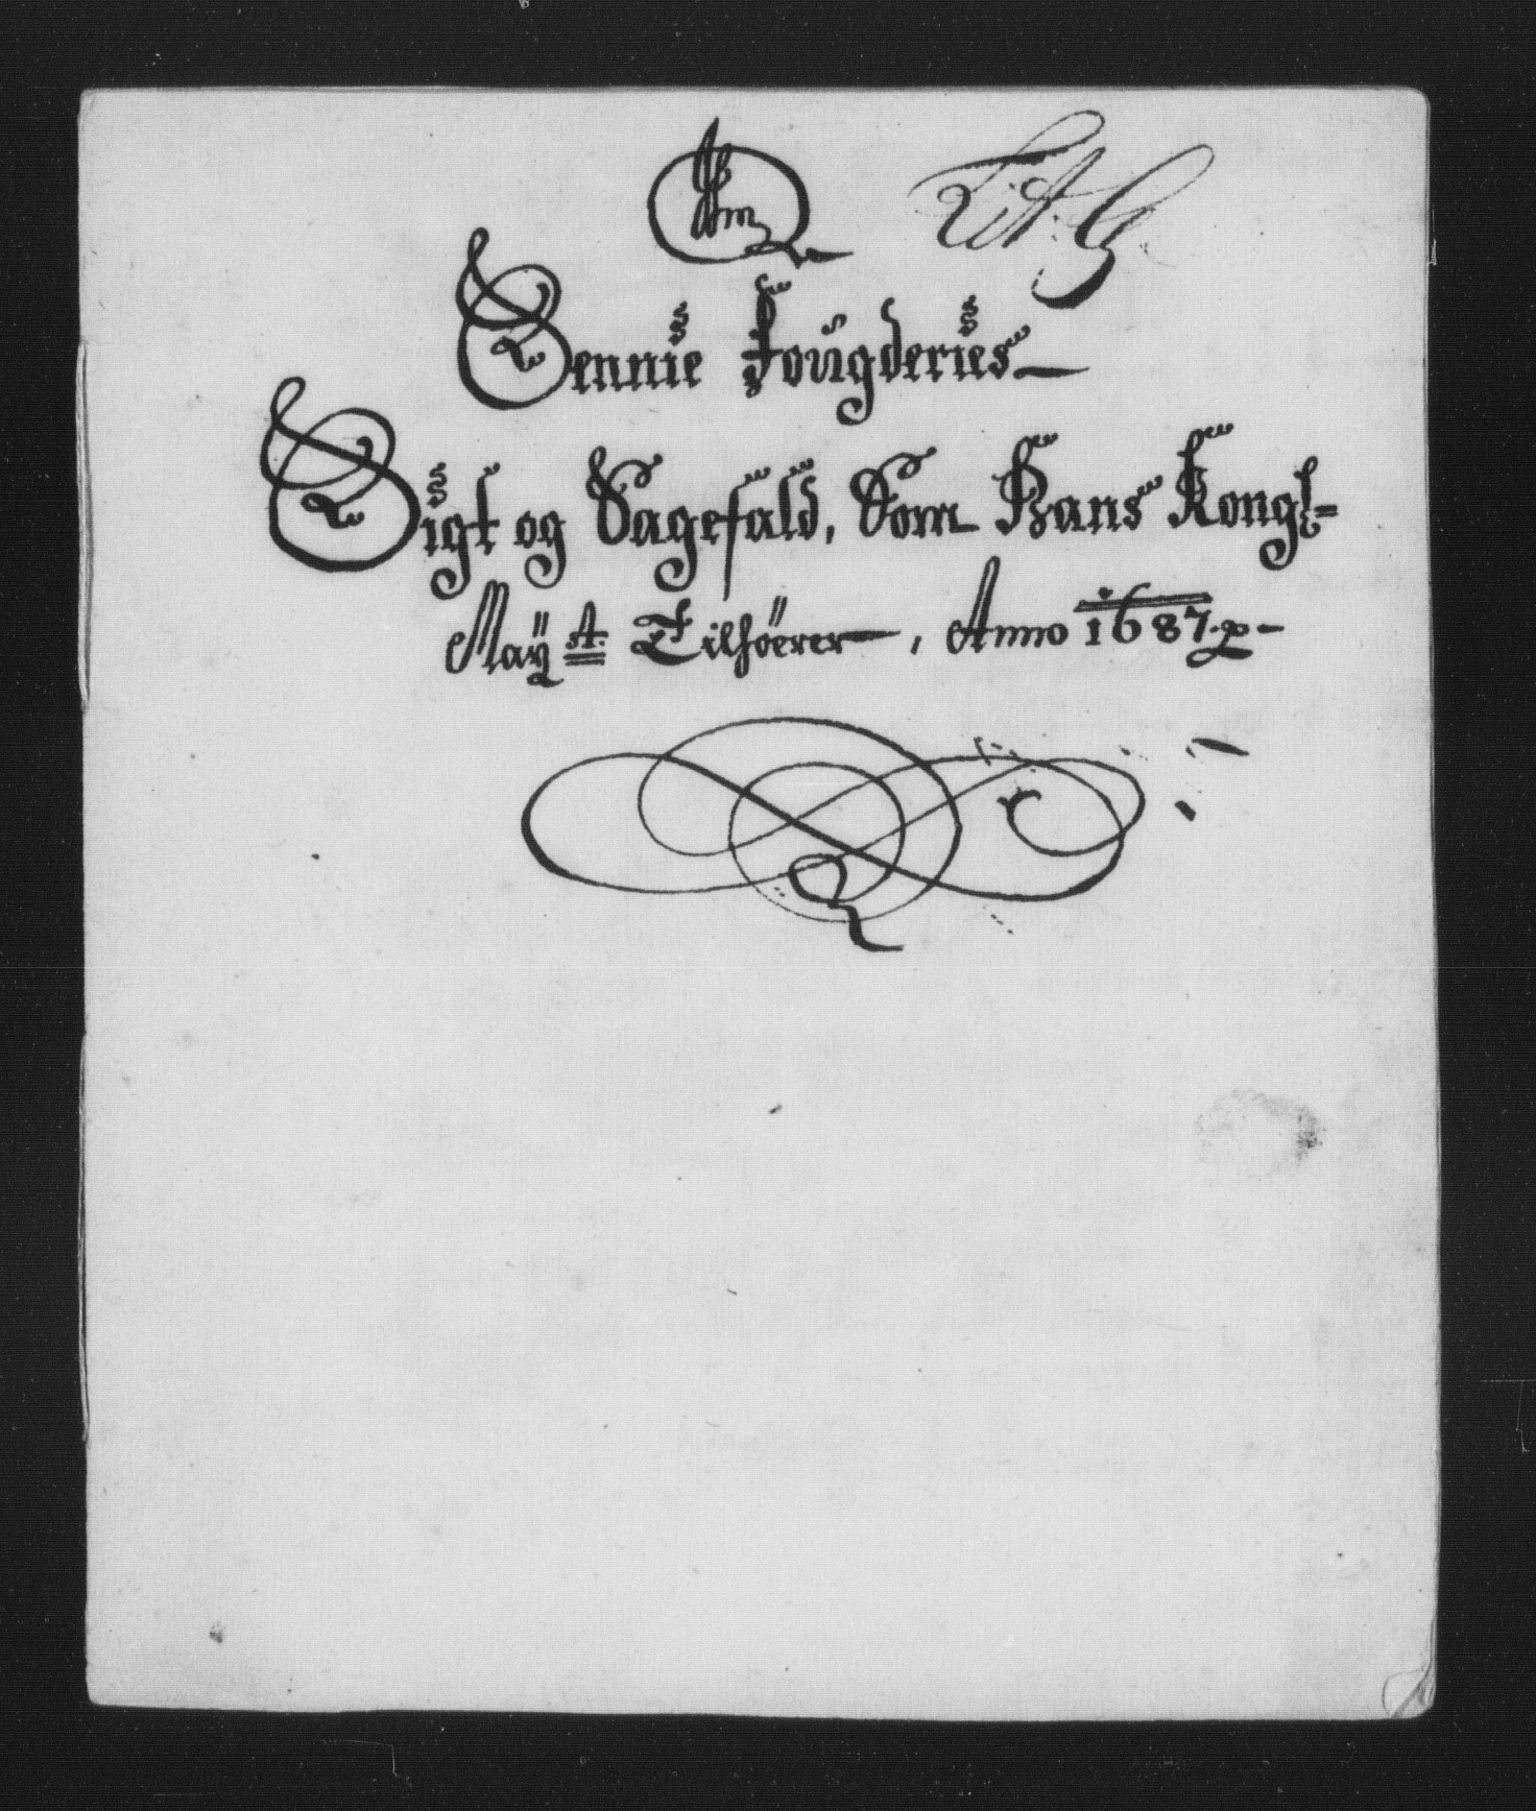 Lit. G
Sennie Fougderies
Sigt og Sagefald, Som Hans Kongl=
Maÿtt: Tilhöerer, Anno 1687.